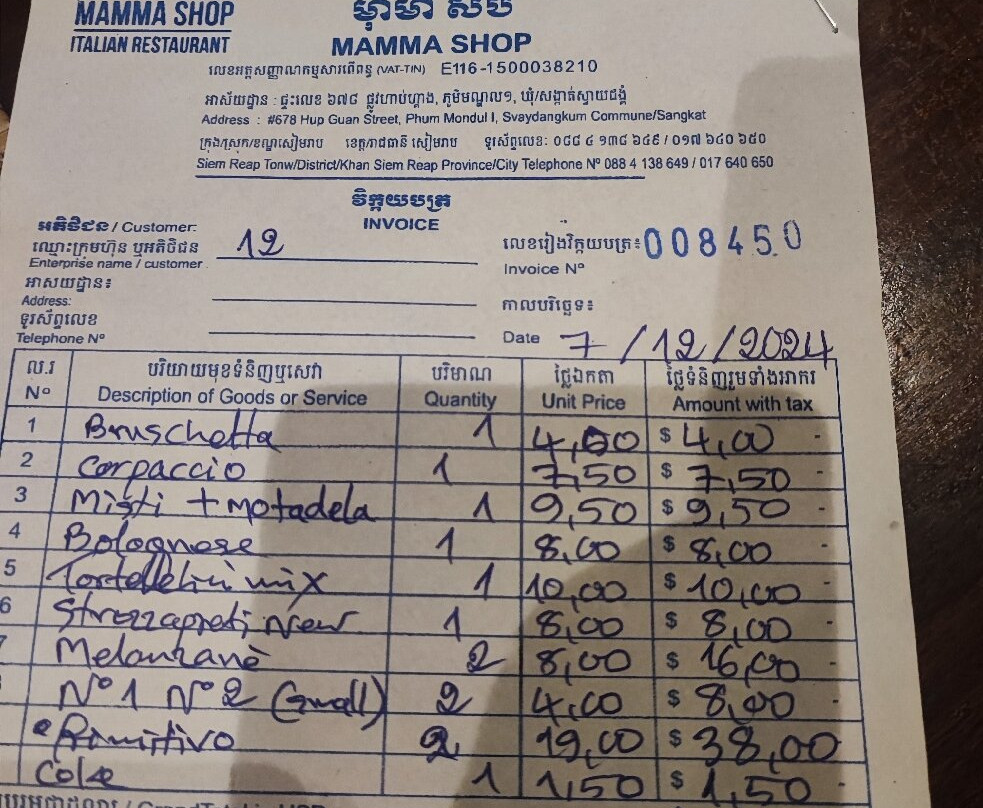 MAMMA SHOP
ITALIAN RESTAURANT
ម៉ាម៉ា សប
MAMMA SHOP
លេខអត្តសញ្ញាណកម្មសារពើពន្ធ (VAT-TIN) E116-1500038210
អាស័យដ្ឋាន : ផ្ទះលេខ ៦៧៨ ផ្លូវហាប់ហ្គាង, ភូមិមណ្ឌល១, ឃុំ/សង្កាត់ស្វាយដង្គំ
Address : #678 Hup Guan Street, Phum Mondul I, Svaydangkum Commune/Sangkat
ក្រុង/ស្រុក/ខណ្ឌសៀមរាប ខេត្ត/រាជធានី សៀមរាប ទូរស័ព្ទលេខ: ០៨៨ ៤ ១៣៨ ៦៤៩ / ០១៧ ៦៤០ ៦៥០
Siem Reap Tonw/District/Khan Siem Reap Province/City Telephone Nº 088 4 138 649 / 017 640 650
វិក្កយបត្រ
INVOICE
អតិថិជន / Customer:
ឈ្មោះក្រុមហ៊ុន ឬអតិថិជន 12
Enterprise name / customer
លេខរៀងវិក្កយបត្រ៖ 008450
Invoice Nº
អាសយដ្ឋាន៖
Address:
ទូរស័ព្ទលេខ
Telephone Nº
កាលបរិច្ឆេទ៖
Date 7/12/2024
ល.រ បរិយាយមុខទំនិញឬសេវា បរិមាណ ថ្លៃឯកតា ថ្លៃទំនិញរួមទាំងអាករ
Nº Description of Goods or Service Quantity Unit Price Amount with tax
1 Bruschetta 1 4,00 $ 4,00 -
2 Carpaccio 1 7,50 $ 7,50 -
3 Misti + Motadela 1 9,50 $ 9,50 -
4 Bolognese 1 8,00 $ 8,00 -
5 Tortellini mix 1 10,00 $ 10,00 -
6 Strozzapreti New 1 8,00 $ 8,00 -
7 Melanzanè 2 8,00 $ 16,00 -
Nº1 Nº2 (small) 2 4,00 $ 8,00 -
Primitivo 2 19,00 $ 38,00
Coke 1 1,50 $ 1,50 -